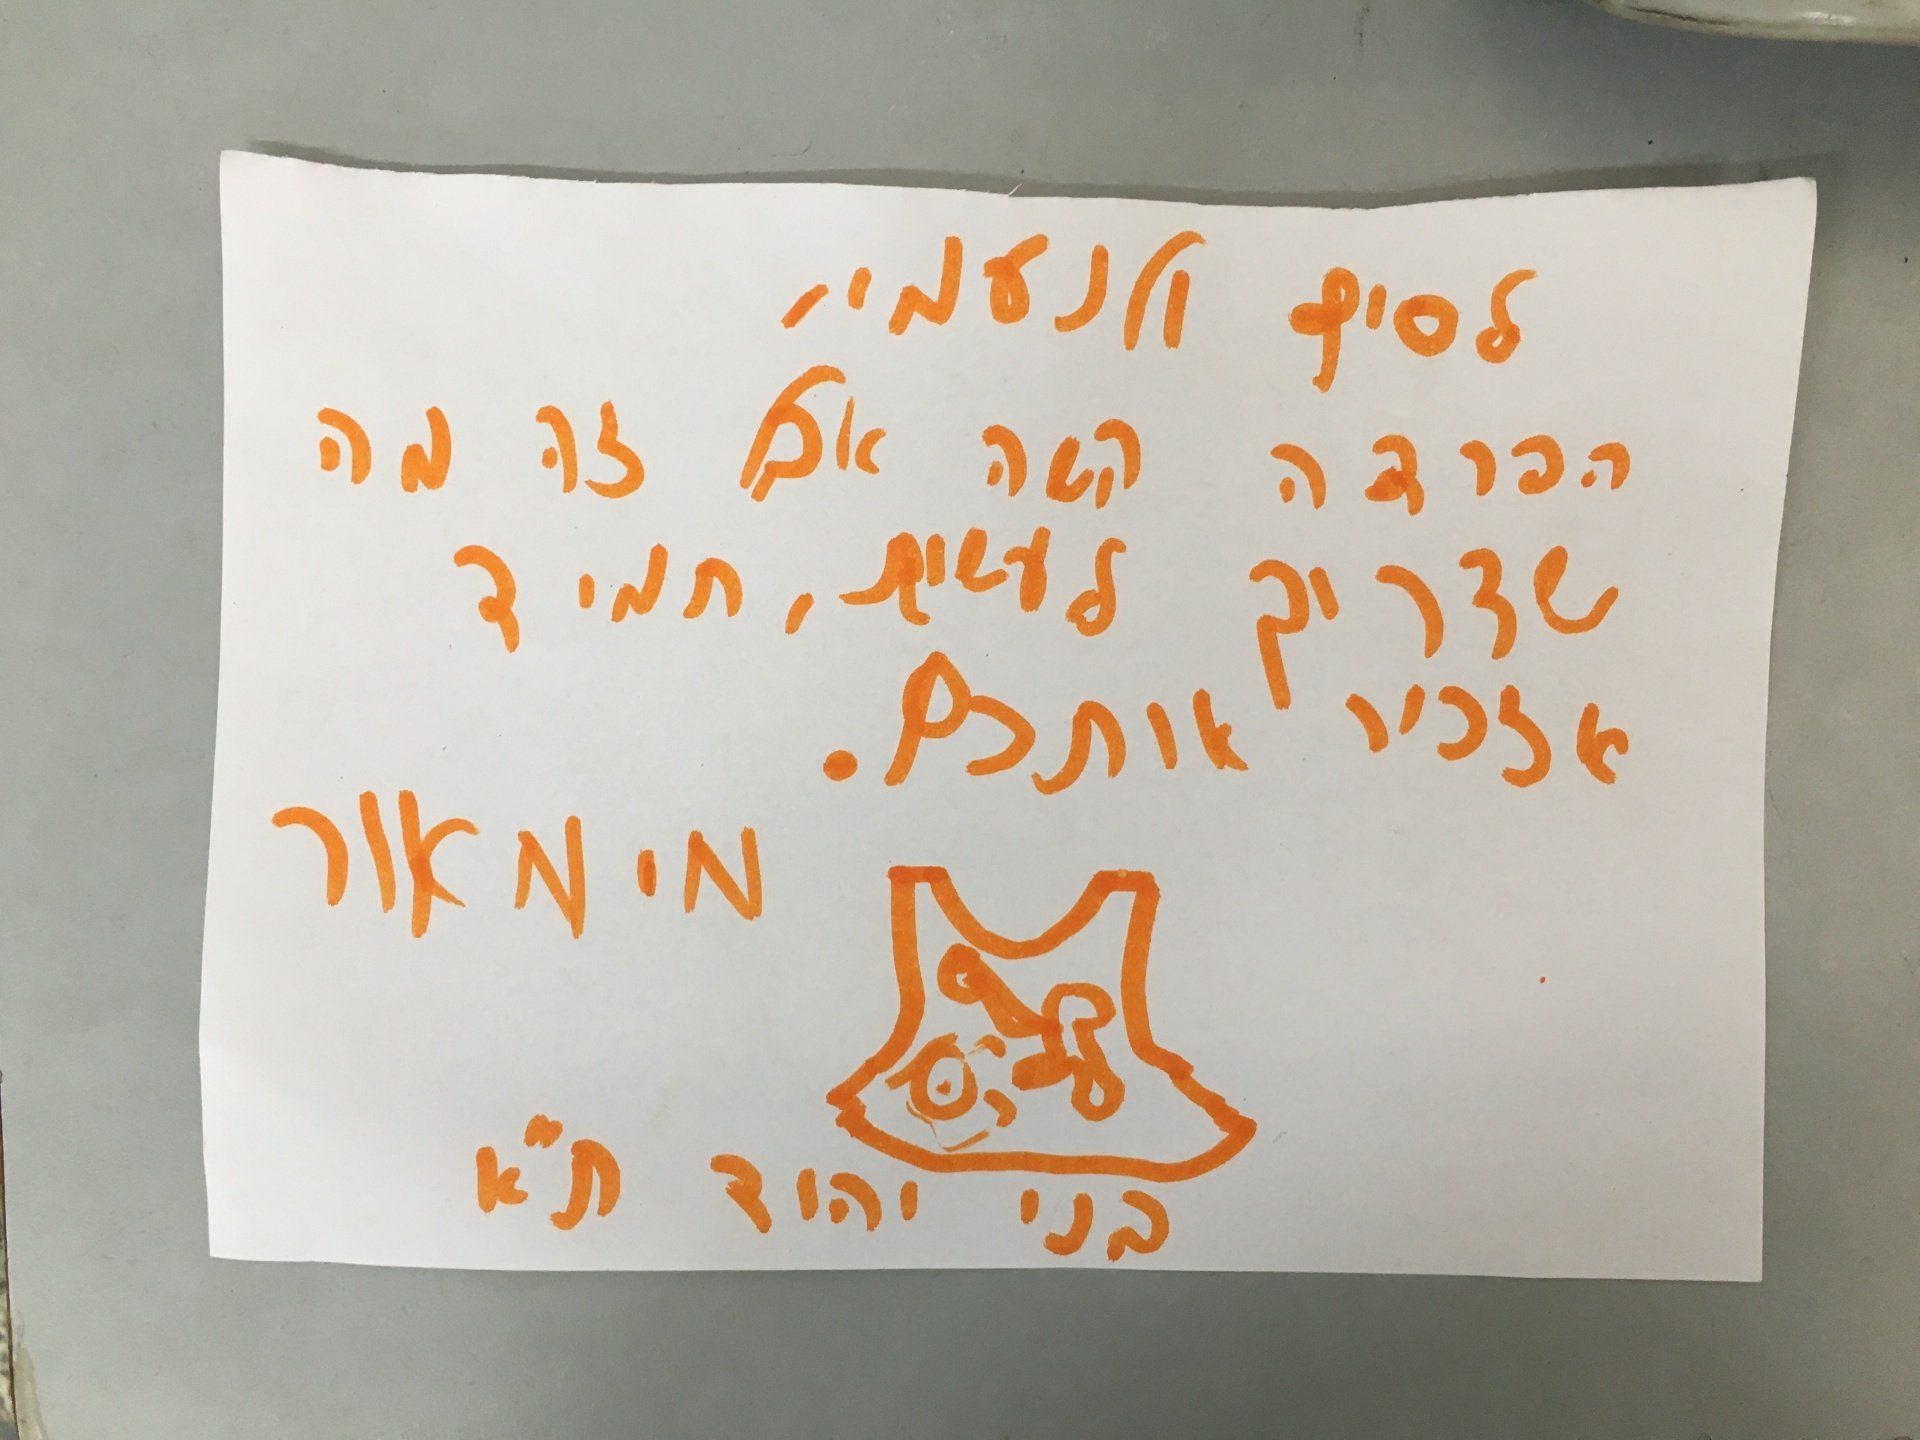 לסיף ולנעמי,
הפרדה קשה אבל זה מה
שצריך לעשות, תמיד
אזכיר אותכם.
מימאור
בני יהוד ת"א